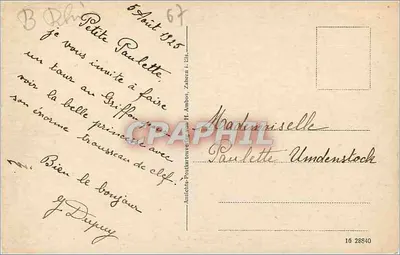 67
5 Août 1925
Petite Paulette.
je vous invite à faire
un tour au Griffon
voir la belle princesse avec
son énorme trousseau de clef!
Bien le bonjour
G. Dupuy
Ansichts-Postkartenverlag H. Ambos, Zabern i. Els.
CPAPHIL
Mademoiselle
Paulette Umdenstock
16 28840